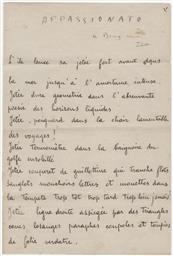 APPASSIONATO
S'il lance sa jetée fort avant dans
la mer jusqu'à l'amertume intense.
Jetée dure géométrie dans l'abreuvante
poésie des horizons liquides
Jetée, poignard dans la chair lamentable
des voyages!
Jetée Thermomètre dans la baignoire du
golfe
Jetée couperet de guillotine qui tranche flots
sanglots mouchoirs lettres et mouettes dans
la Tempête Trop tôt Trop tard Trop loin jamais!
Jetée ligne droite assiégée par des Triangles
cones losanges paraphes coupoles et toupies
de folie verdatre.